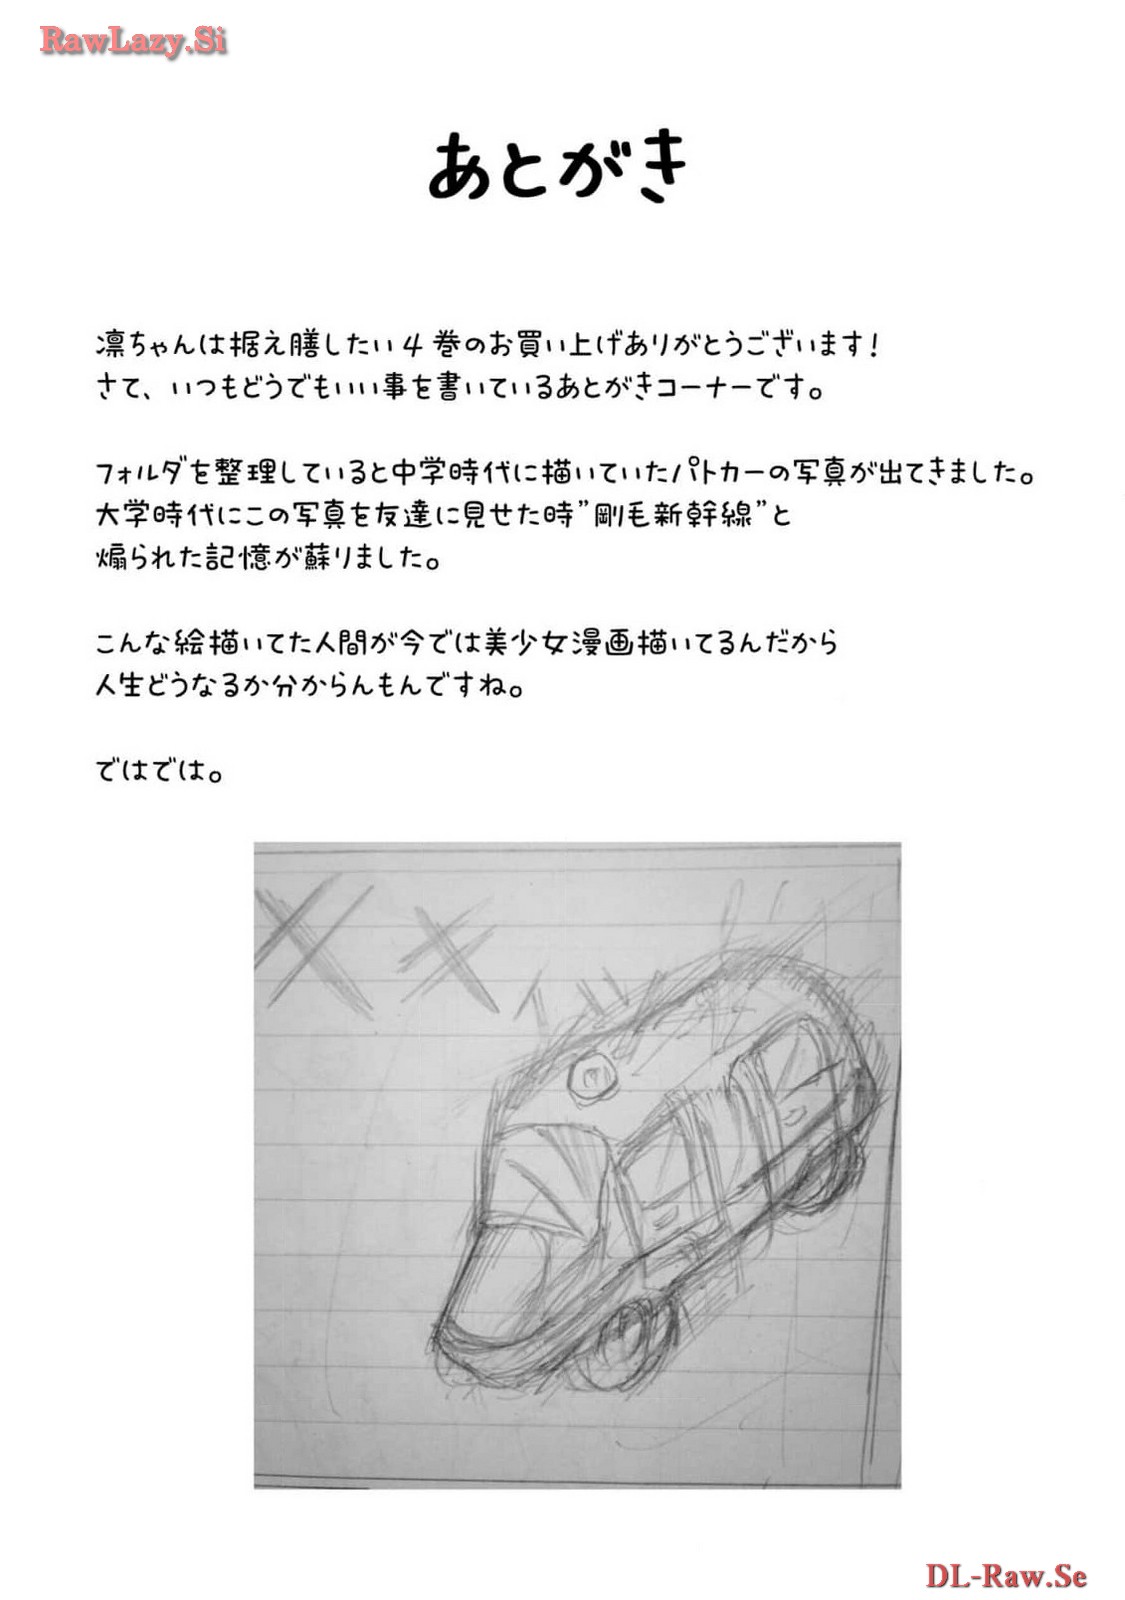 RawLazy.Si
あとがき
凛ちゃんは据え膳したい4巻のお買い上げありがとうございます!
さて、いつもどうでもいい事を書いているあとがきコーナーです。
フォルダを整理していると中学時代に描いていたパトカーの写真が出てきました。
大学時代にこの写真を友達に見せた時”剛毛新幹線”と
煽られた記憶が蘇りました。
こんな絵描いてた人間が今では美少女漫画描いてるんだから
人生どうなるか分からんもんですね。
ではでは。
DL-Raw.Se